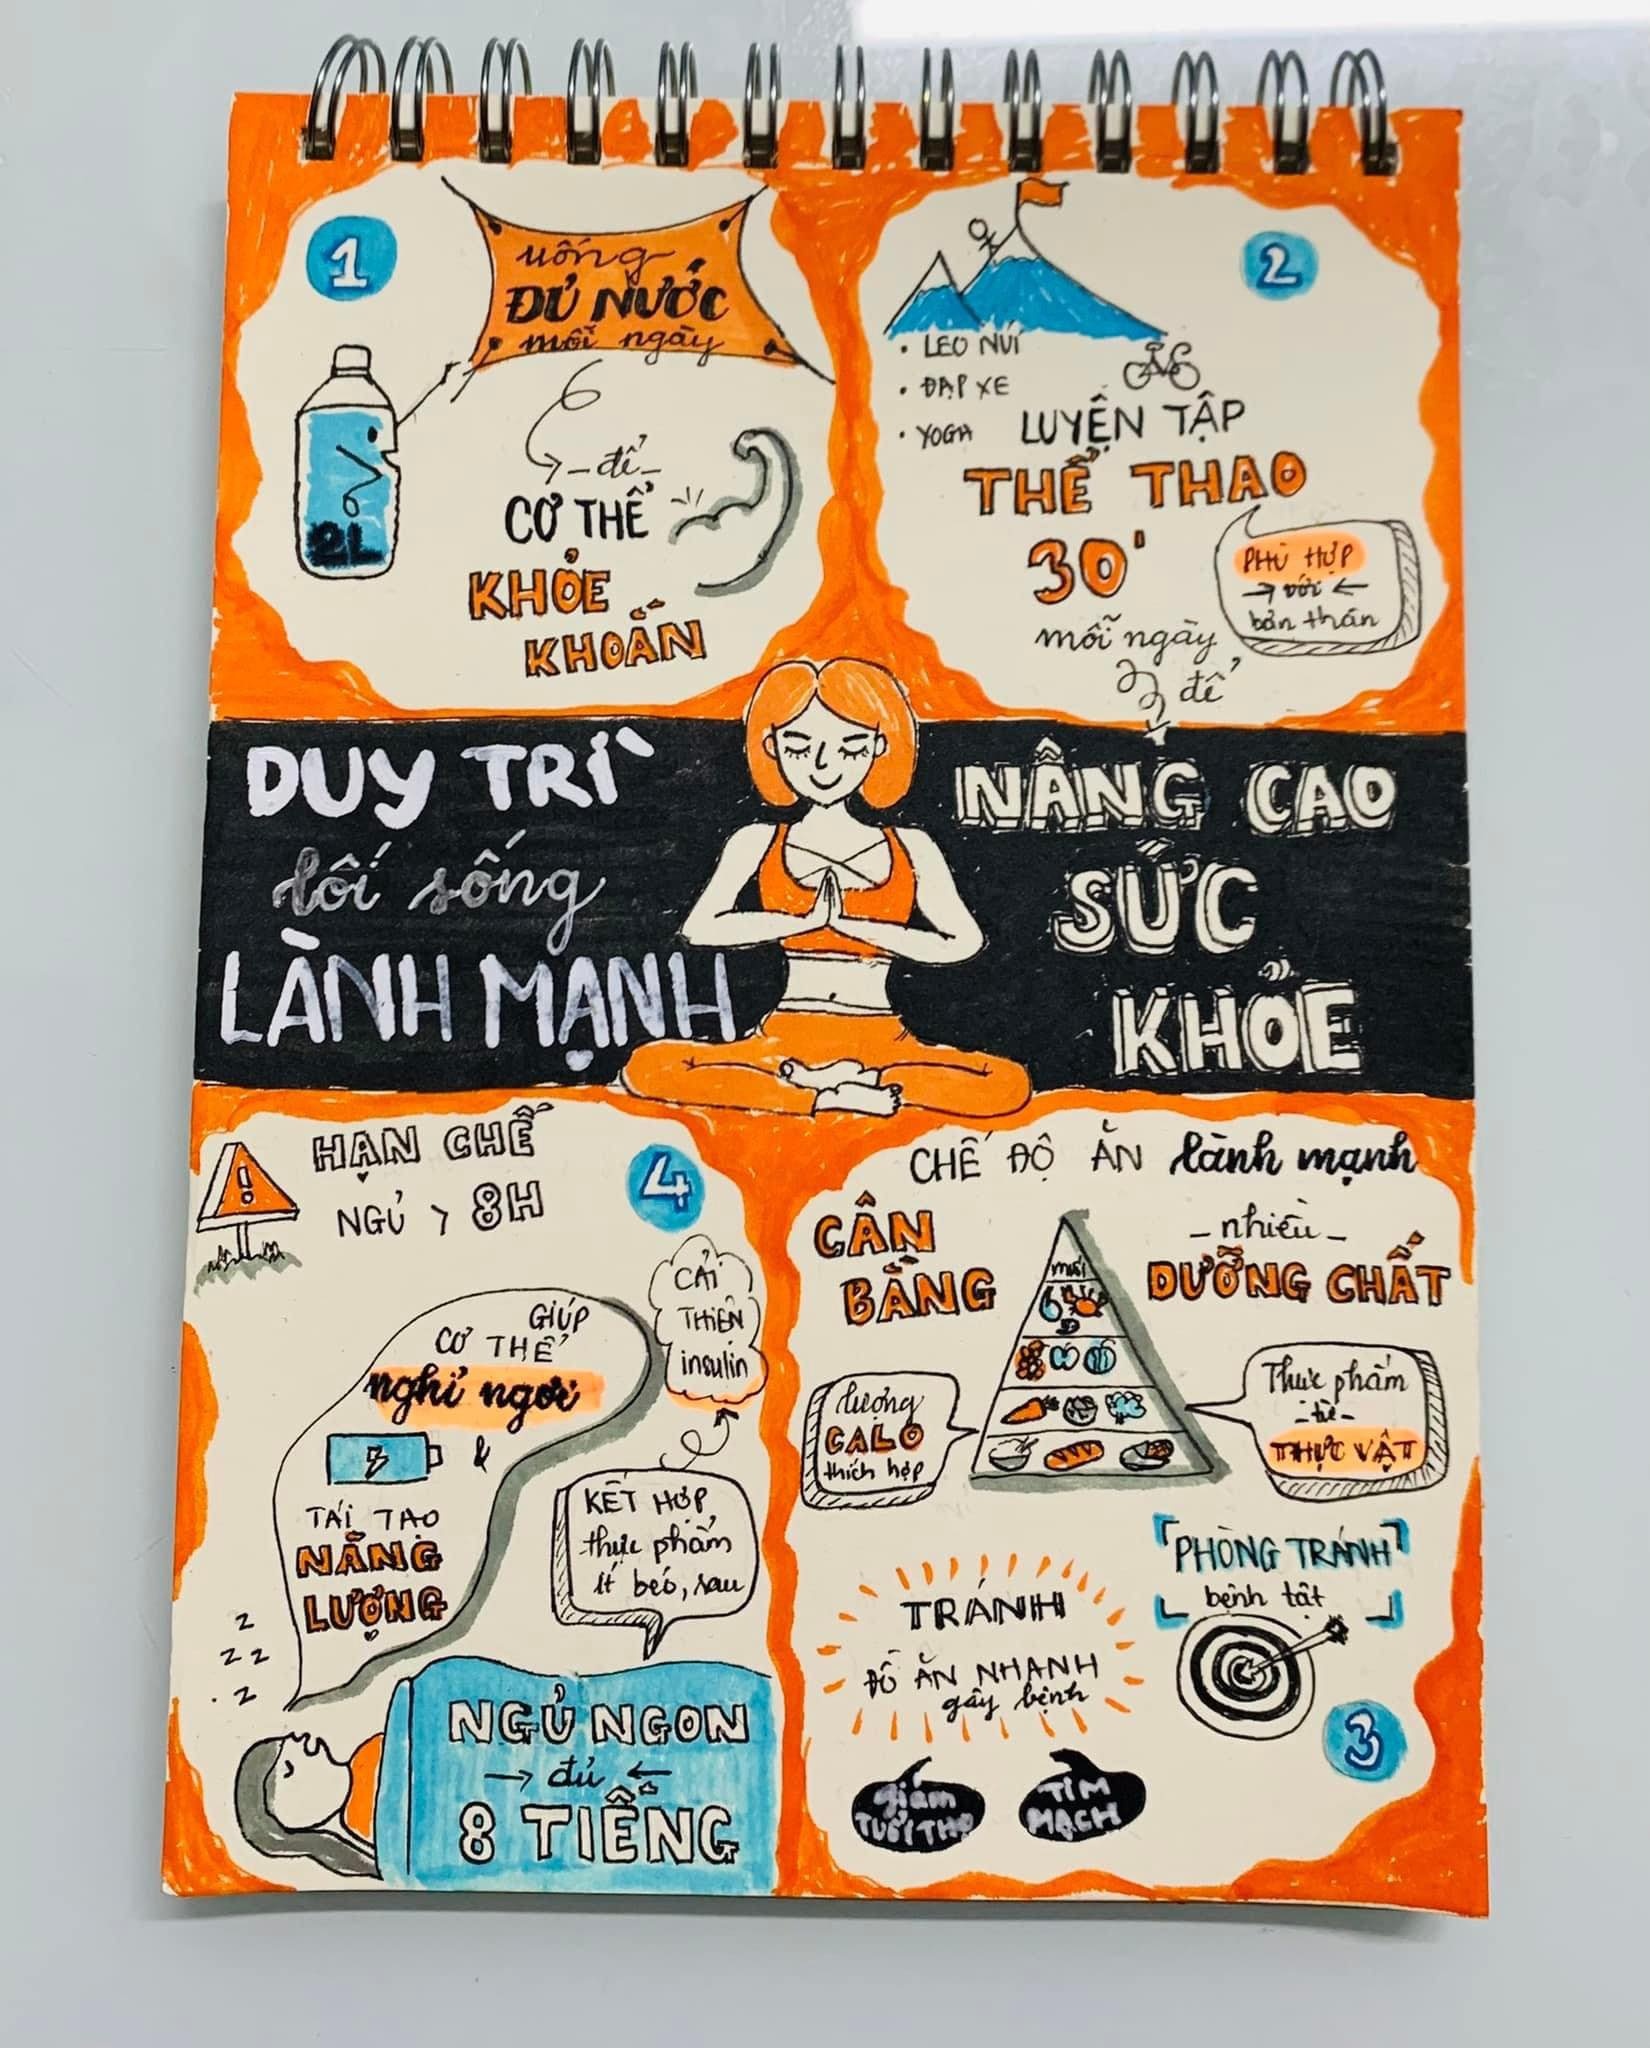 1
uống
ĐỦ NƯỚC
mỗi ngày
2L
để
CƠ THỂ
KHỎE
KHOẮN
2
• LEO NÚI
• ĐẠP XE
• YOGA
LUYỆN TẬP
THỂ THAO
30'
mỗi ngày
để
PHÙ HỢP
với
bản thân
DUY TRÌ
lối sống
LÀNH MẠNH
NÂNG CAO
SỨC
KHỎE
CHẾ ĐỘ ĂN lành mạnh
CÂN
BẰNG
nhiều
DƯỠNG CHẤT
muối
lượng
CALO
thích hợp
Thực phẩm
từ
THỰC VẬT
PHÒNG TRÁNH
bệnh tật
TRÁNH
ĐỒ ĂN NHANH
gây bệnh
giảm
TUỔI THỌ
TIM
MẠCH
3
HẠN CHẾ
NGỦ > 8H
4
GIÚP
CƠ THỂ
nghỉ ngơi
&
TÁI TẠO
NĂNG
LƯỢNG
CẢI
THIỆN
insulin
KẾT HỢP
thực phẩm
ít béo, rau
z
z z
z
NGỦ NGON
đủ
8 TIẾNG